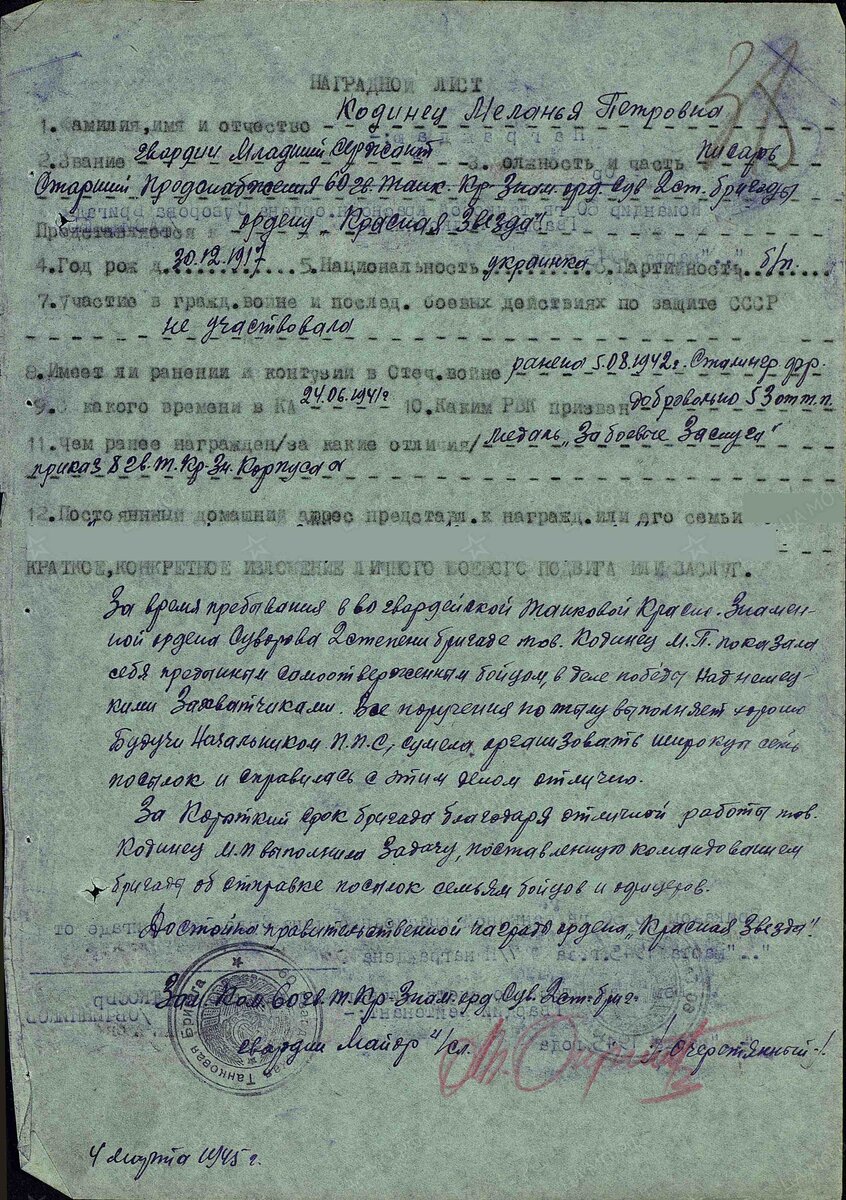 38
НАГРАДНОЙ ЛИСТ
1. Фамилия, имя и отчество Кодинец Меланья Петровна
2. Звание гвардии Младший Сержант 3. должность и часть писарь
Старший Продснабжения 60 гв. Танк. Кр-Знам. орд Сув 2 ст. бригады
Представляется к ордену "Красная Звезда"
4. Год рожд. 20.12.1917 5. Национальность украинка 6. Партийность б/п
7. Участие в гражд. войне и послед. боевых действиях по защите СССР
не участвовала
8. Имеет ли ранения и контузии в Отеч. войне ранена 5.08.1942 г. Сталингр. фр.
9. С какого времени в КА 24.06.1941 г 10. Каким РВК призван добровольно 53 от.т.п.
11. Чем ранее награжден /за какие отличия/ медаль "За боевые Заслуга"
приказ 8 гв. Т. Кр-Зн. Корпуса
12. Постоянный домашний адрес представл. к награжд. или его семьи
КРАТКОЕ, КОНКРЕТНОЕ ИЗЛОЖЕНИЕ ЛИЧНОГО БОЕВОГО ПОДВИГА ИЛИ ЗАСЛУГ.
За время пребывания в 60 гвардейской Танковой Красно-Знамен-
ной ордена Суворова 2 степени бригаде тов. Кодинец М.П. показала
себя преданным самоотверженным бойцом, в деле победы над немец-
кими Захватчиками. Все поручения по тылу выполняет хорошо
Будучи Начальником П.П.С, сумела организовать широкую сеть
посылок и справилась с этим делом отлично.
За Короткий срок бригада благодаря отличной работы тов.
Кодинец М.П выполнила Задачу, поставленную командованием
бригады об отправке посылок семьям бойцов и офицеров.
Достойна правительственной награды ордена "Красная Звезда".
Зам. Ком. 60 гв. Т. Кр-Знам. орд Сув. 2 ст. бриг.
гвардии Майор и/сл. /Очеретянный/
Танковая Бригада
4 марта 1945 г.